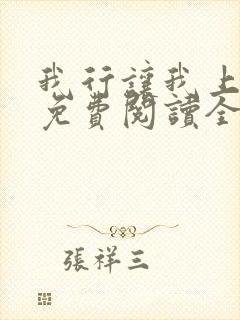 我行讓我上
免費閱讀全
張祥三